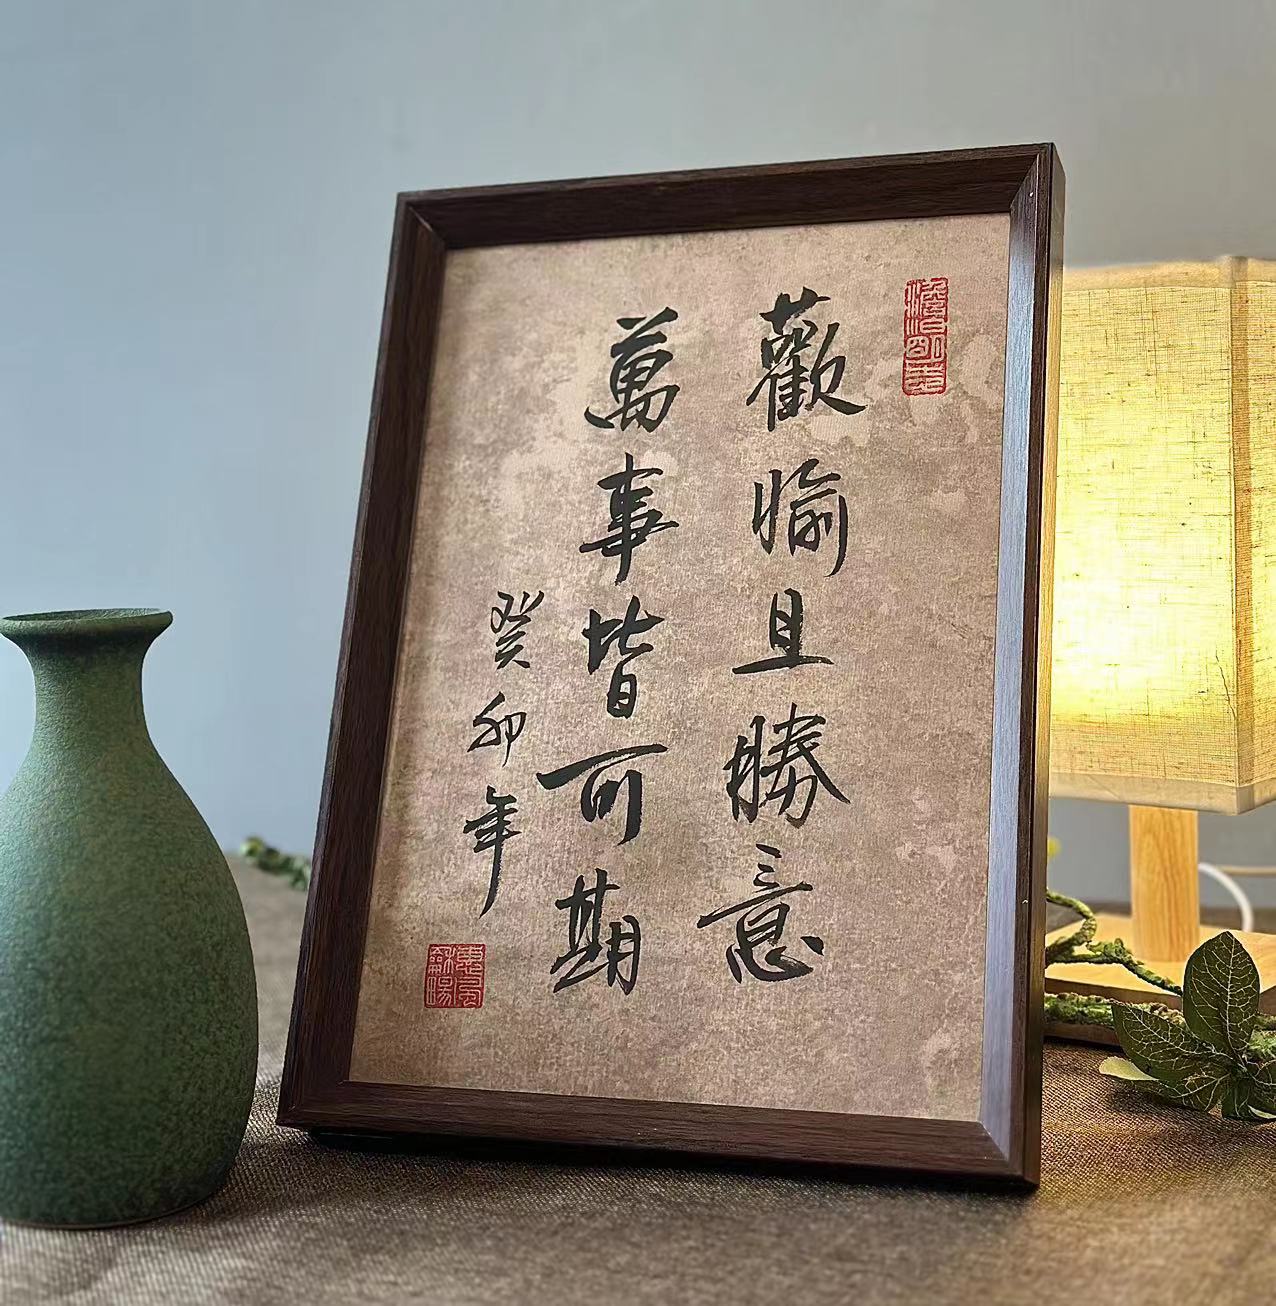 歡愉且勝意
萬事皆可期
癸卯年